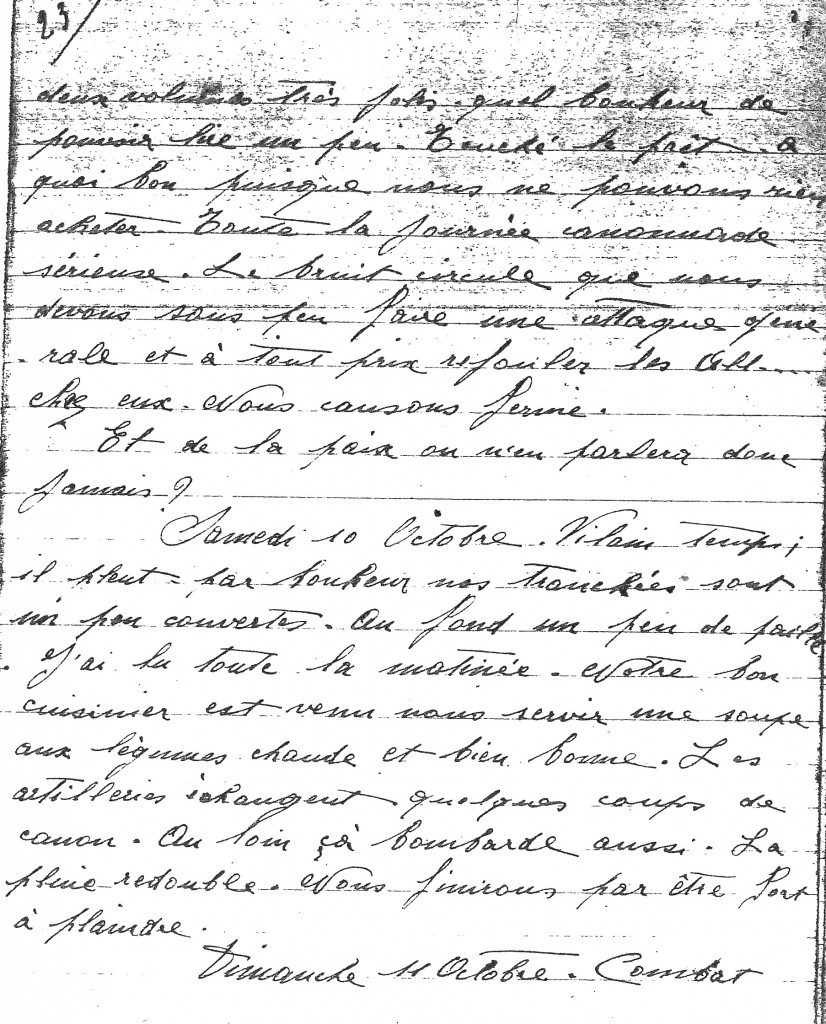 23/
deux volumes très jolis. quel bonheur de
pouvoir lire un peu. Touché le prêt. à
quoi bon puisque nous ne pouvons rien
acheter. Toute la journée canonnade
sérieuse. Le bruit circule que nous
devons sous peu faire une attaque géné
-rale et à tout prix refouler les All....
chez eux. Nous causons ferme.
Et de la paix on n'en parlera donc
jamais ?
Samedi 10 Octobre. Vilain temps ;
il pleut - par bonheur nos tranchées sont
un peu couvertes. Au fond un peu de paille
. J'ai lu toute la matinée. Notre bon
cuisinier est venu nous servir une soupe
aux légumes chaude et bien bonne. Les
artilleries échangent quelques coups de
canon. Au loin çà bombarde aussi. La
pluie redouble. Nous finirons par être fort
à plaindre.
Dimanche 11 Octobre. Combat